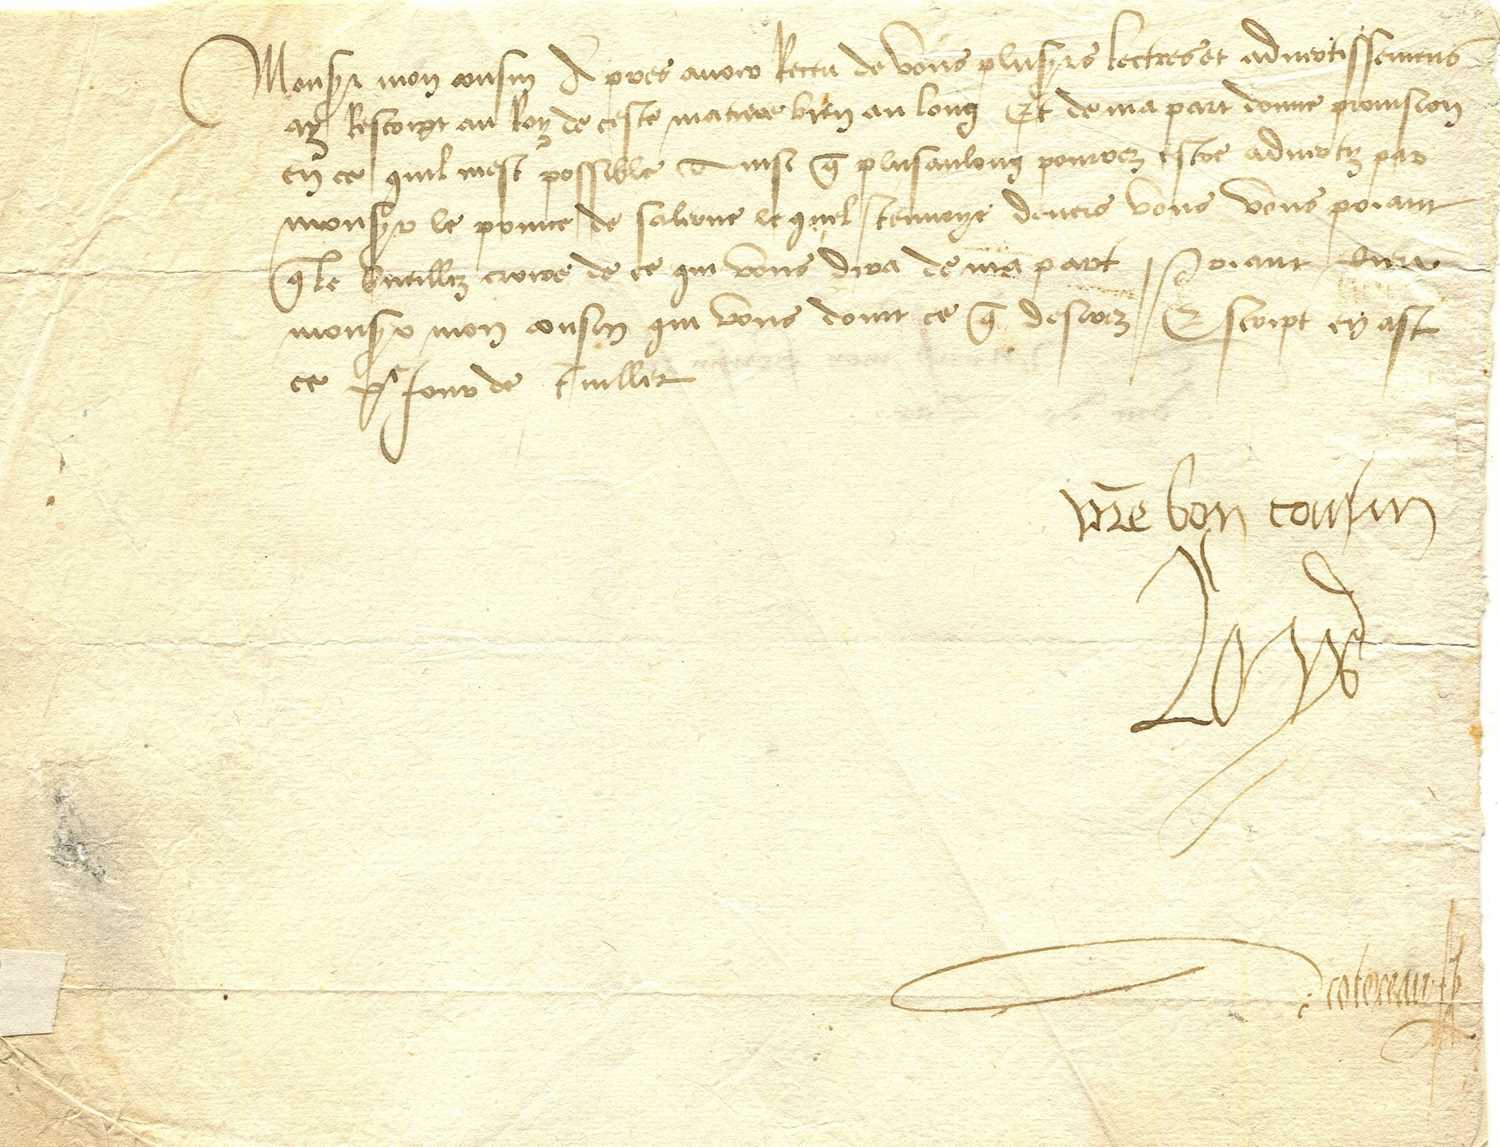 Monsyr mon cousin Apres avoir Receu de vous plusyrs lectres et advertissemens
ay Rescript au Roy de ceste matiere bien au long Et de ma part donne provision
en ce quil mest possible Ainsi q̄ plus au long pourrez estre adverty par
monsyr le prince de salerne le quel jenvoye devers vous vous priant
q̄ le vueillez croire de ce qui vous dira de ma part / priant dieu
monsyr mon cousin qui vous doint ce q̄ desirez / Escript en ast
ce pr̄ jour de Juillet
vr̄e bon cousin
Loys
Cotereau